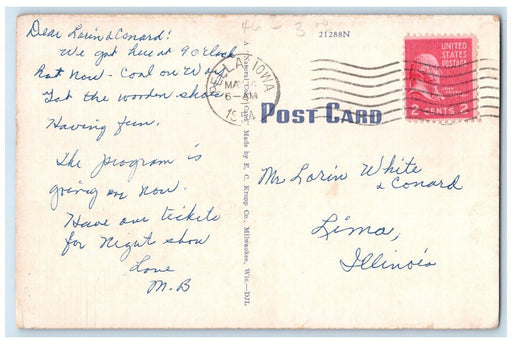 Dear Lorin & Conard!
We got here at 9 O'clock
Hot now - Cool on Way
Got the wooden shoes
Having fun.
The program is
going on now.
Have our tickets
for Night show
Love
M.B
46 - 3 00
21288N
A "Natural Color" Card Made by E. C. Kropp Co., Milwaukee, Wis.—DJL
PELLA, IOWA
MAY
6-AM
POST CARD
UNITED
STATES
POSTAGE
2 CENTS 2
Mr Lorin White
& Conard
Lima,
Illinois